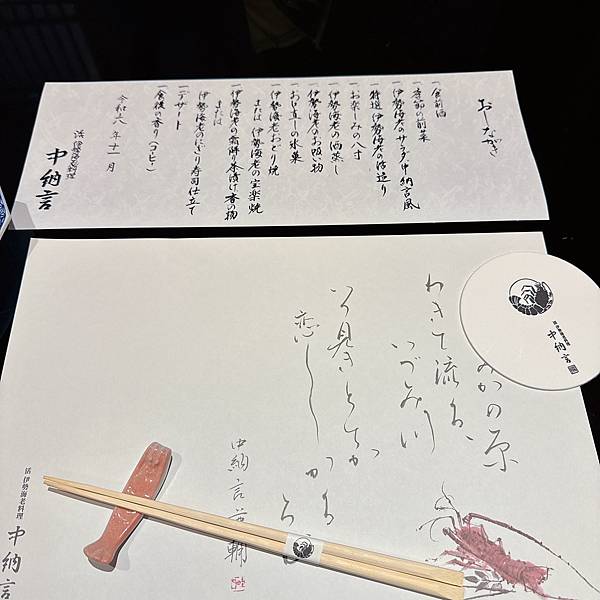 おしながき
一 食前酒
一 季節の前菜
一 伊勢海老のサラダ 中納言風
一 特選 伊勢海老の活造り
一 お楽しみの八寸
一 伊勢海老の酒蒸し
一 伊勢海老のお吸い物
一 お口直しの氷菓
一 伊勢海老おどり焼
または 伊勢海老の宝楽焼
一 伊勢海老の霜降り茶漬け 香の物
または
伊勢海老のにぎり寿司仕立て
一 デザート
一 食後の香り(コーヒー)
令和六年十一月
活 伊勢海老料理
中納言
みかの原
わきて流るゝ
いづみ川
いつ見きとてか
恋し
かるらむ
中納言兼輔
活 伊勢海老料理
中納言
活 伊勢海老料理
中納言